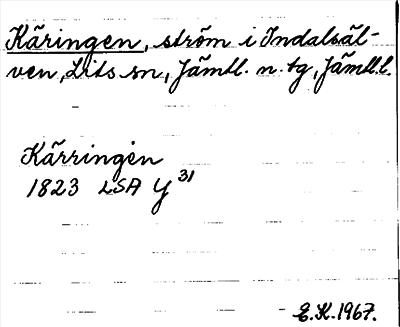 Käringen, ström i Indalsäl-
ven, Lits sn, Jämtl. n. tg, Jämtl.l.
Kärringen
1823 LSA Y 31
E.K. 1967.